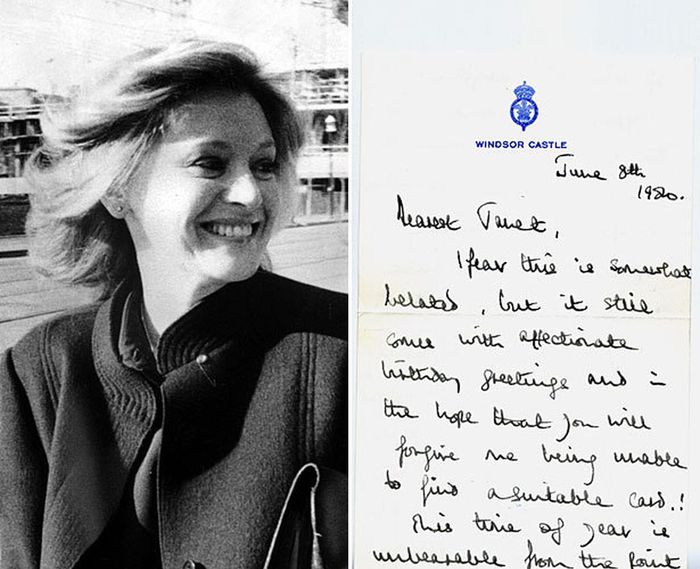 WINDSOR CASTLE
June 8th
1980.
Dearest Janet,
I fear this is somewhat
belated, but it still
comes with affectionate
birthday greetings and in
the hope that you will
forgive me being unable
to find a suitable card.!
This time of year is
unbearable from the point